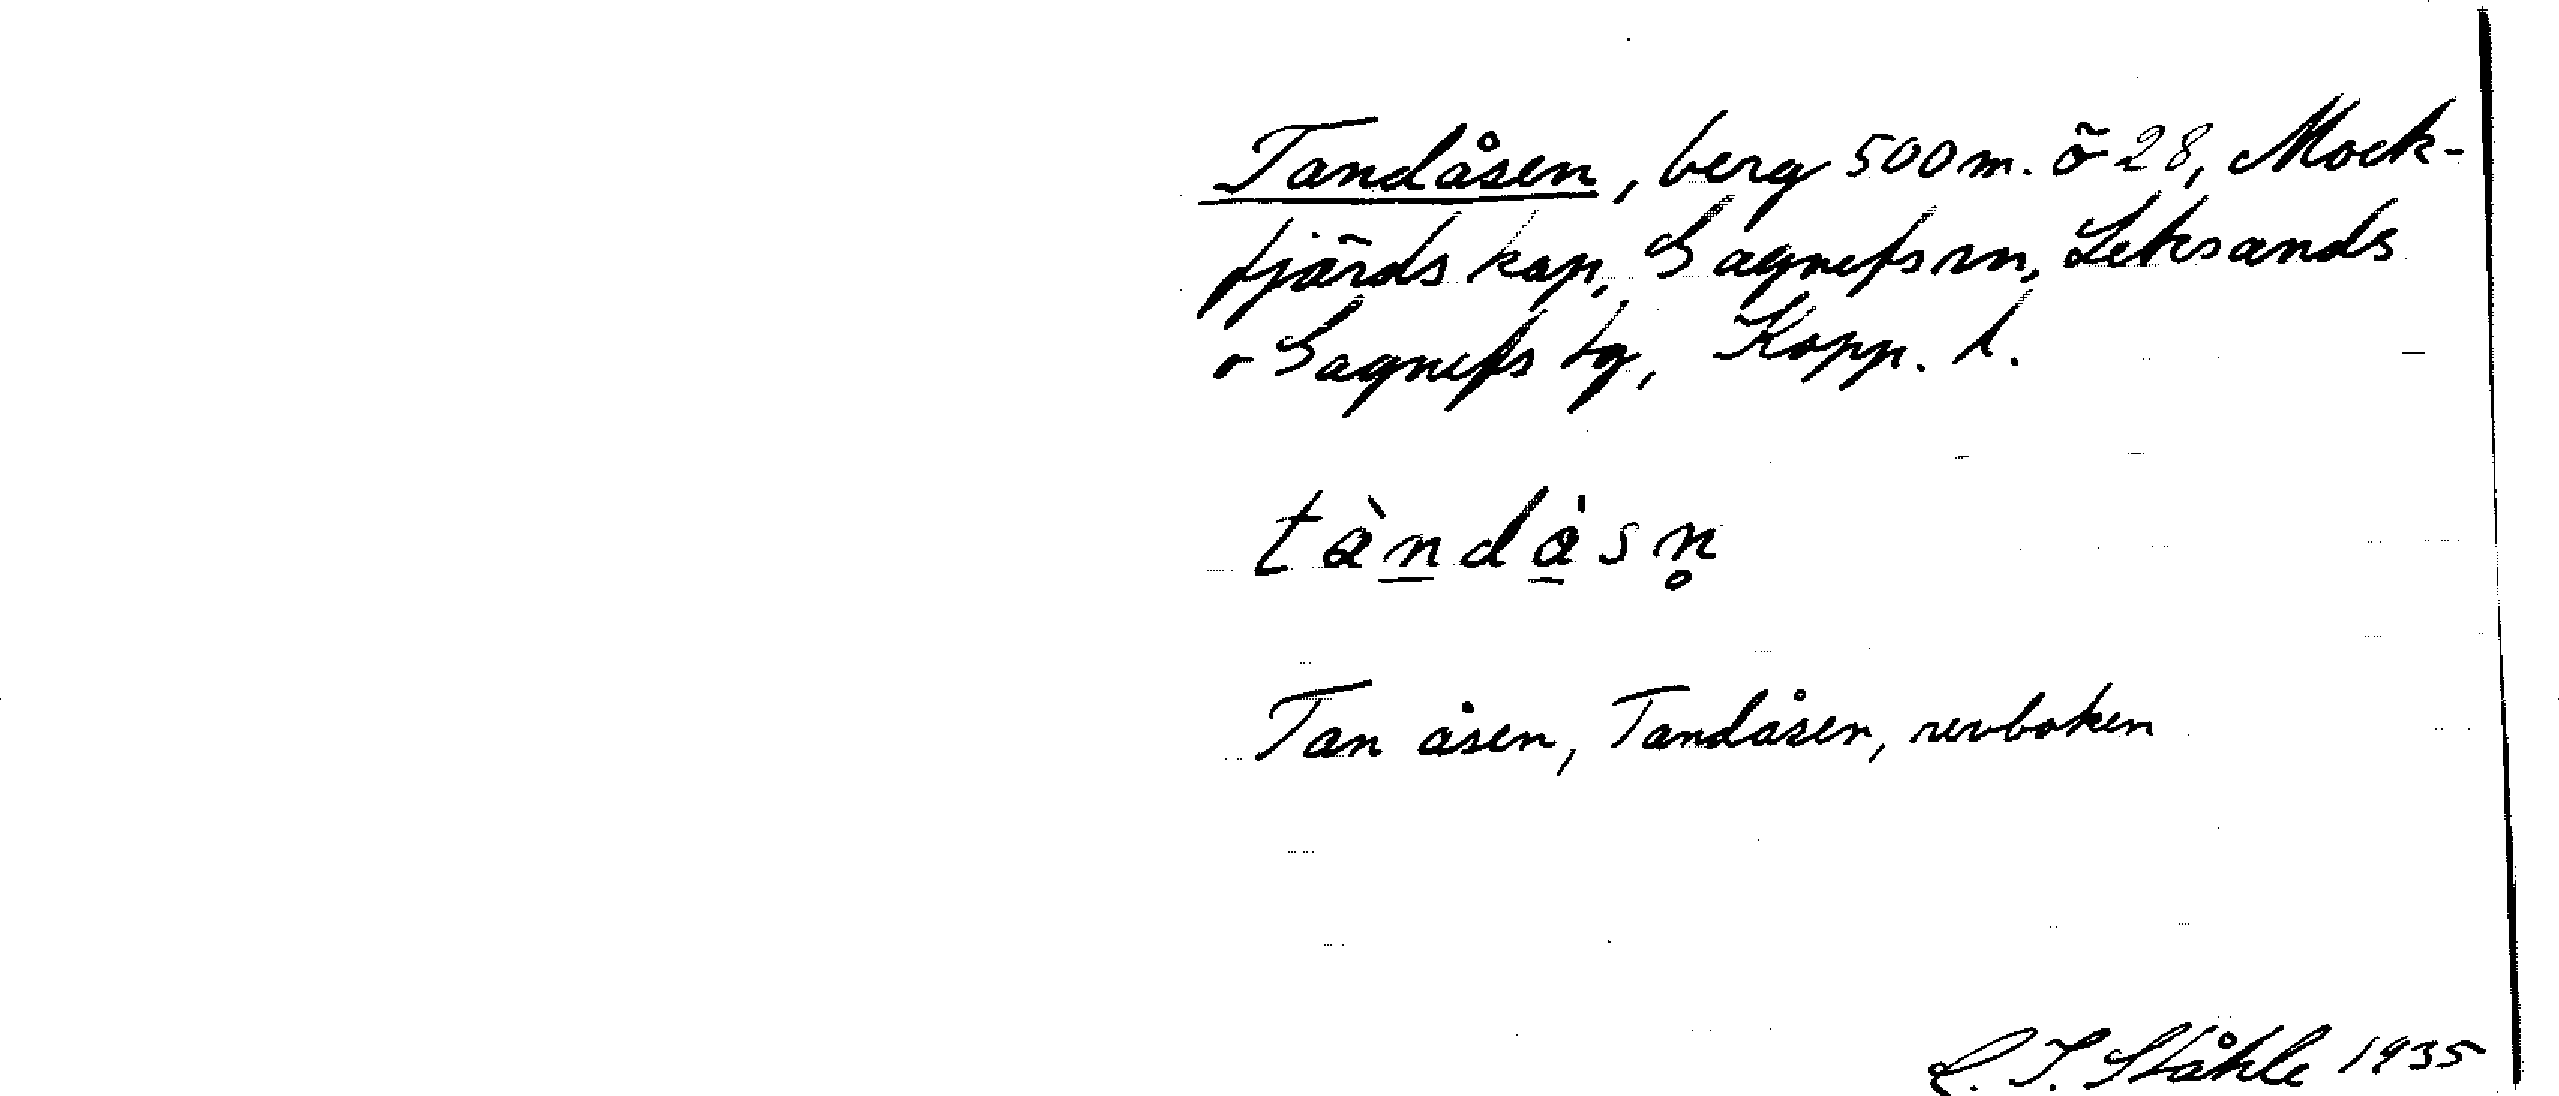 Tandåsen, berg 500 m. ö 28, Mock-
fjärds kap, Gagnefs sn, Leksands
o Gagnefs tg, Kopp. l.
tàn̲dà̲sn̥
Tan åsen, Tandåsen, revboken
C. I. Ståhle 1935